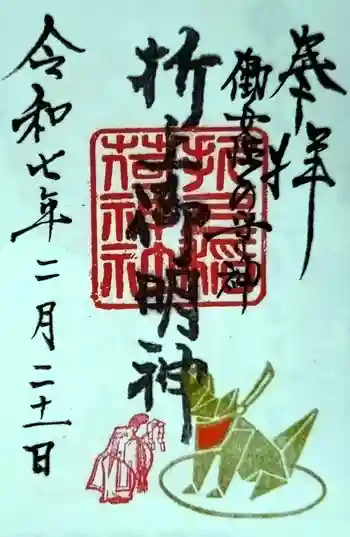 奉拝
働女性の守神
折上御明神
折上稲
荷神社
令和七年二月二十一日